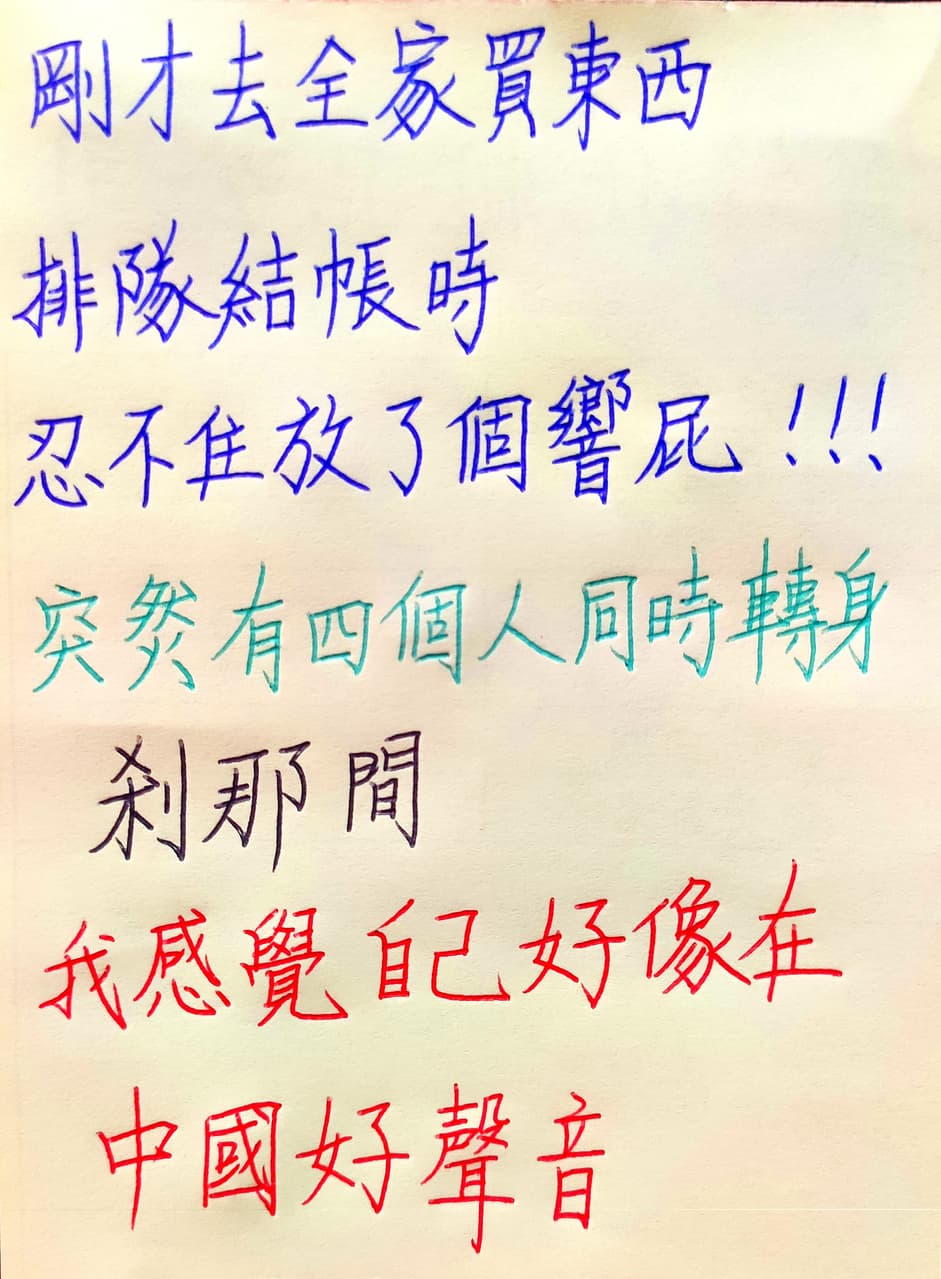 剛才去全家買東西
排隊結帳時
忍不住放了個響屁!!!
突然有四個人同時轉身
剎那間
我感覺自己好像在
中國好聲音